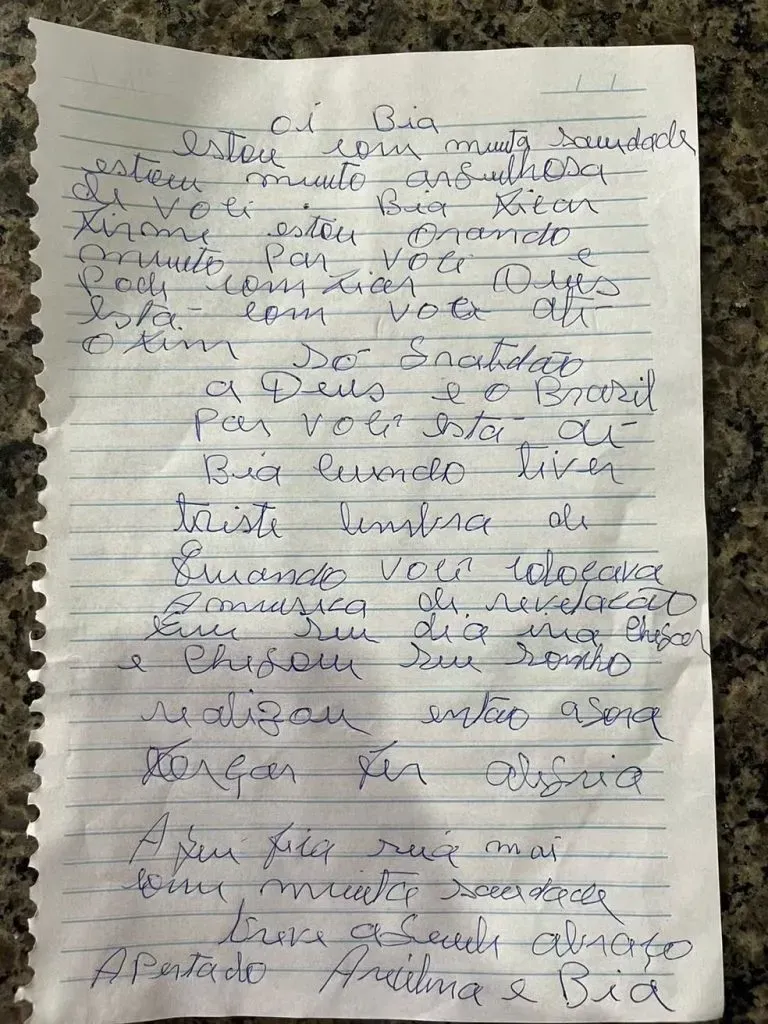 oi Bia
estou com muita saudade
estou muito orgulhosa
di voli. Bia Ficar
Firme estou orando
muito Por voli e
Podi comfiar Deus
Está com voli ati
o Fim só Gratidão
a Deus e o Brazil
Por voli está ai
Bia cuando tiver
triste lembra di
Quando voli colocava
A musica di revelação
seu dia via chegar
e chegou seu sonho
realizou então agora
Força Fer alegria
Aqui fica sua mai
com muinta saudade
breve abraço
Apertado e Bia